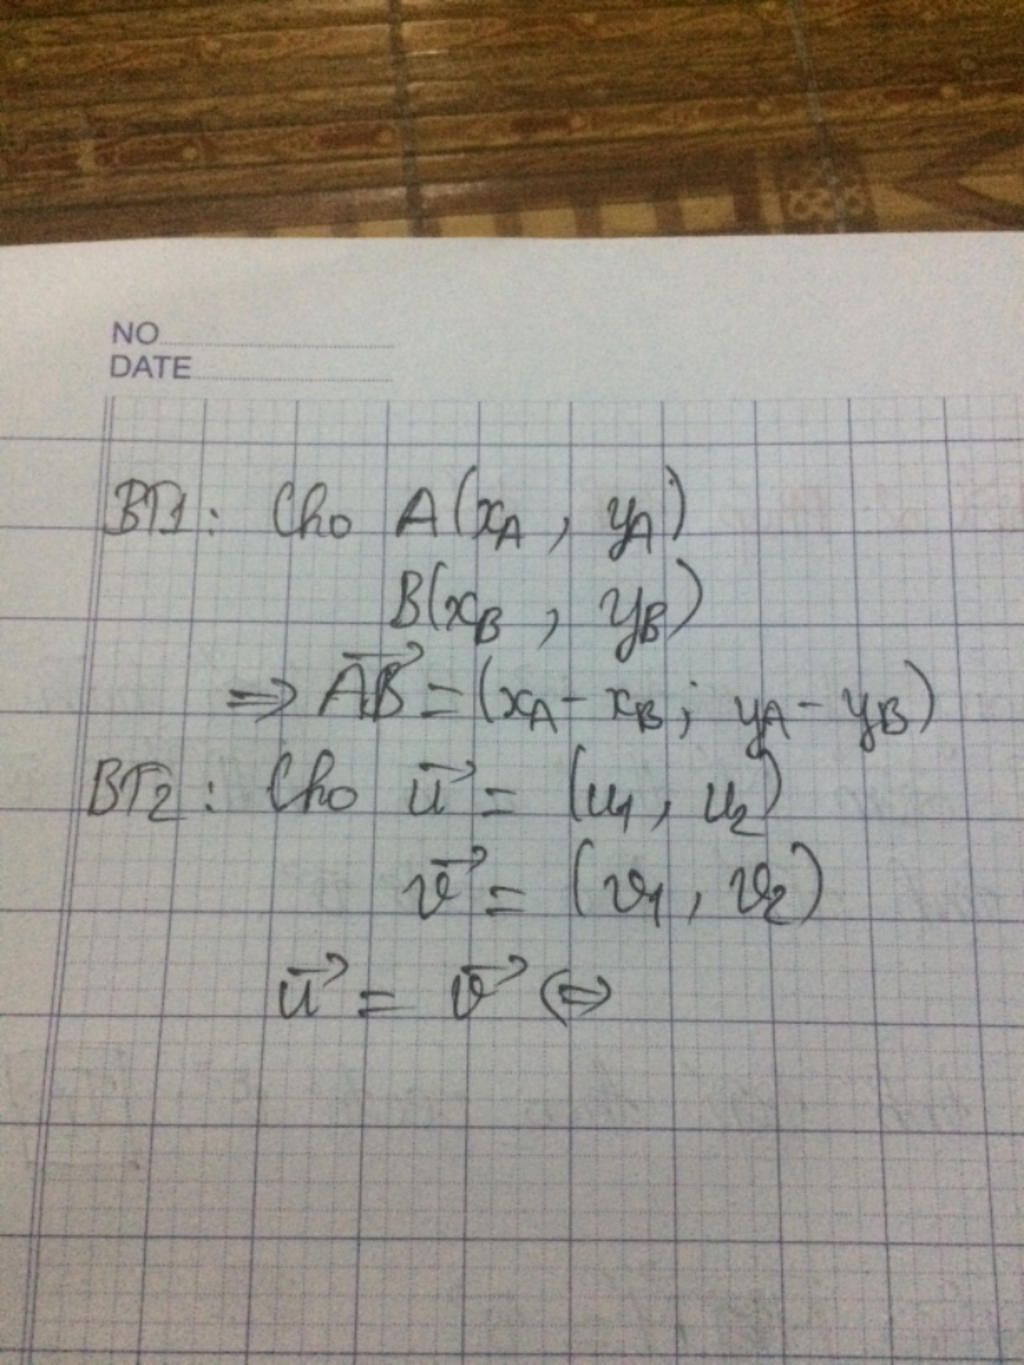 NO
DATE
BT1: Cho A(x_A, y_A)
B(x_B, y_B)
⇒ \overrightarrow{AB} = (x_A - x_B; y_A - y_B)
BT2: Cho \vec{u} = (u_1, u_2)
\vec{v} = (v_1, v_2)
\vec{u} = \vec{v} ⇔